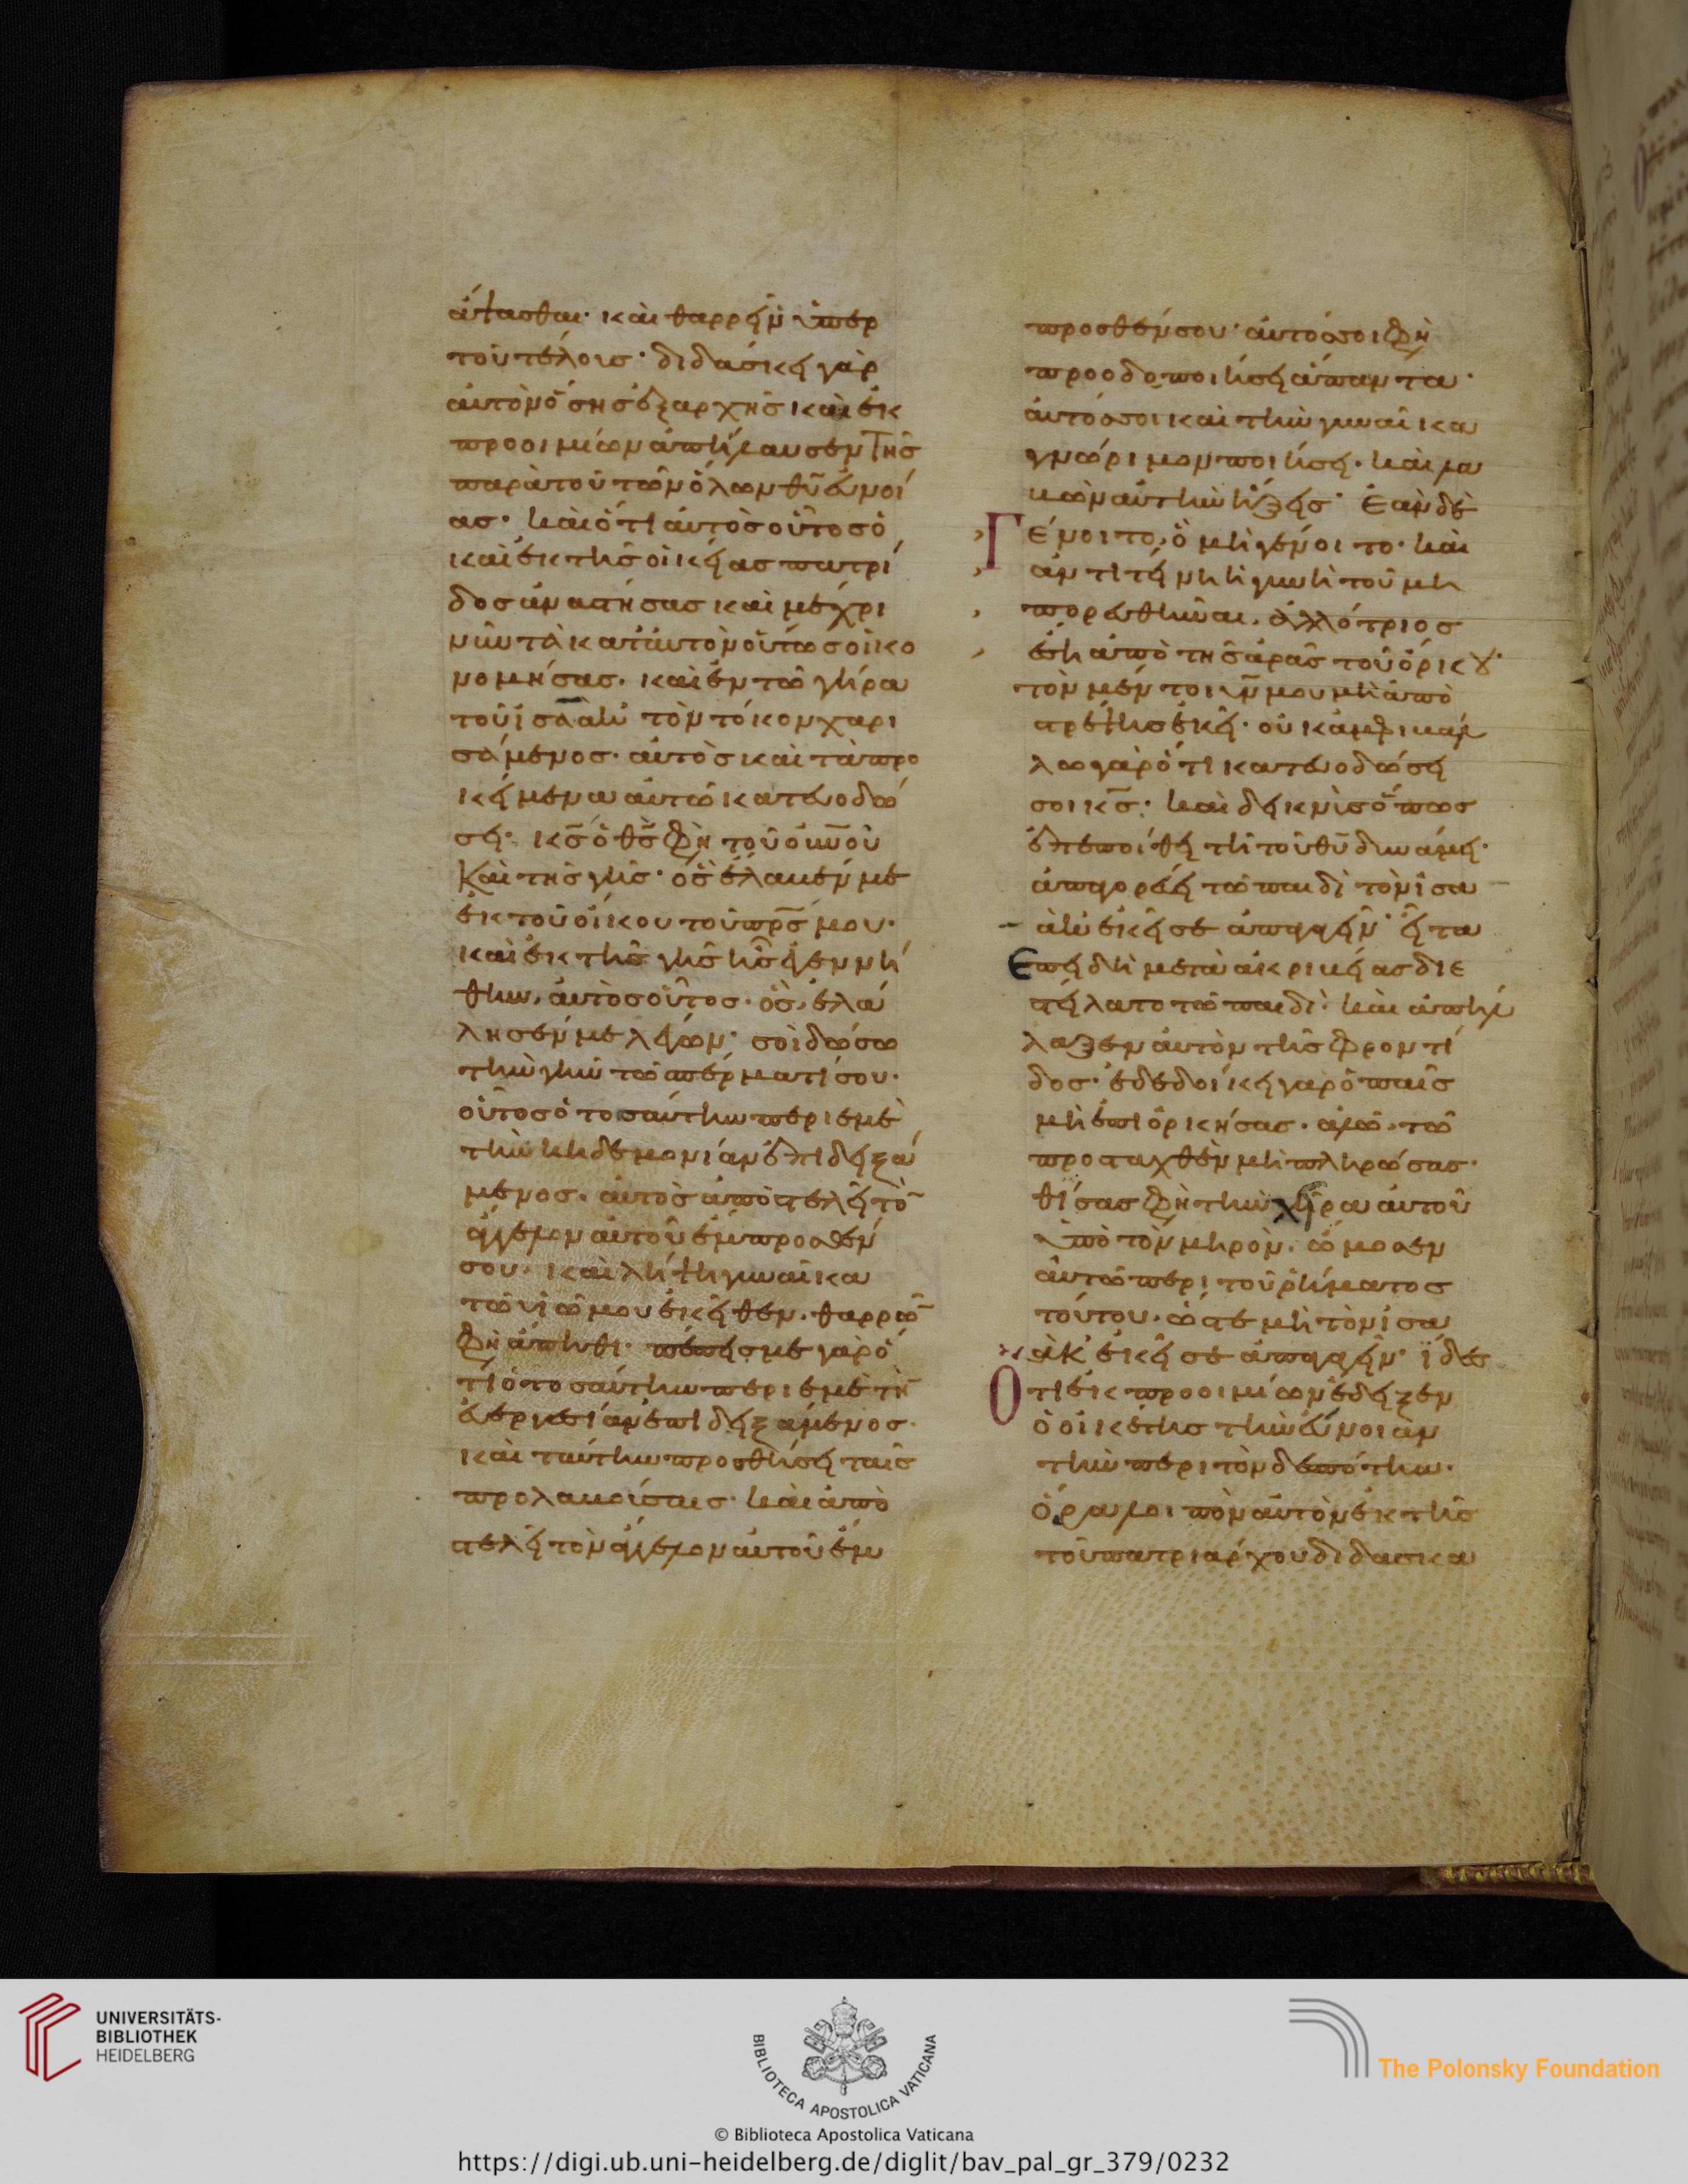 ἅπτασθαι· καὶ θαρρεῖν ὑπὲρ
τοῦ τέλους· διδάσκει γὰρ
αὐτὸν ὅσης ἐξαρχῆς καὶ ἐκ
προοιμίων ἀπήλαυσεν τῆς
παρὰ τοῦ τῶν ὅλων θῦ εὐνοί
ας· καὶ ὅτι αὐτὸς οὗτος ὁ
καὶ ἐκ τῆς οἰκείας πατρί
δος ἀναστήσας καὶ μέχρι
νῦν τὰ κατ' αὐτὸν οὕτως οἰκο
νομήσας· καὶ ἐν τῶ γήρα
τοῦ ἰσαὰκ τὸν τόκον χαρι
σάμενος· αὐτὸς καὶ τὰ προ
κείμενα αὐτῶ κατευοδώ
σει· κς ὁ θς φὴ τοῦ οὐνοῦ
καὶ τῆς γῆς· ὃς ἔλαβέν με
ἐκ τοῦ οἴκου τοῦ πρς μου·
καὶ ἐκ τῆς γῆς ἧς ἐγεννή
θην, αὐτὸς οὗτος· ὃς ἐλά
λησέν με λέγων· σοὶ δώσω
τὴν γῆν τῶ σπέρματί σου·
οὗτος ὁ τοσαύτην περὶ ἐμὲ
τὴν κηδεμονίαν ἐπιδειξά
μενος· αὐτὸς ἀποστελεῖ τὸ
ἄγγελον αὐτοῦ ἔμπροσθέν
σου· καὶ λήψη γυναῖκα
τῶ υἱῶ μου ἐκεῖθεν· θαρρῶ
φὴ ἄπιθι· πέπεισμε γὰρ ὅ
τι ὁ τοσαύτην περὶ ἐμὲ τὴ
εὐεργεσίαν ἐπιδειξάμενος·
καὶ ταύτην προσθήσει ταῖς
προλαβούσαις· καὶ ἀπο
στελεῖ τὸν ἄγγελον αὐτοῦ ἔμ
προσθέν σου· αὐτός σοι φὴ
προοδοποιήσει ἅπαντα·
αὐτός σοι καὶ τὴν γυναῖκα
γνώριμον ποιήσει· καὶ λα
βὼν αὐτὴν ἥξεις· ἐὰν δὲ
Γένοιτο, ὃ μὴ γένοιτο· καὶ
ἀντιτείνη ἡ γυνὴ τοῦ μὴ
πορευθῆναι, ἀλλότριος
ἔση ἀπὸ τῆς ἀρᾶς τοῦ ὅρκου·
τὸν μέντοι υν μου μὴ ἀπο
στρέψης ἐκεῖ· οὐκ ἀμφιβάλ
λω γὰρ ὅτι κατευοδώσει
σοι κς· καὶ δεικνὺς ὅπως
ἐπεποίθει τῆ τοῦ θυ δυνάμει·
ἀπαγορεύει τῶ παιδὶ τὸν ἰσα
ὰκ ἐκεῖσε ἀπαγαγεῖν· εἶτα
Ἐπειδὴ μετὰ ἀκριβείας διε
στείλατο τῶ παιδὶ· καὶ ἀπήλ
λαξεν αὐτὸν τῆς φροντί
δος· ἐδεδοίκει γὰρ ὁ παῖς
μὴ ἐπιορκήσας· ἀλλῶ· τῶ
προσταχθὲν μὴ πληρώσας·
θίσας φὴ τὴν χεῖρα αὐτοῦ
ὑπὸ τὸν μηρὸν· ὤμοσεν
αὐτῶ περὶ τοῦ ῥήματος
τούτου· ὥστε μὴ τὸν ἰσα
ὰκ ἐκεῖσε ἀπαγαγεῖν· ἴδες
Ὅτι ἐκ προοιμίων ἔδειξεν
ὁ οἰκέτης τὴν εὔνοιαν
τὴν περὶ τὸν δεσπότην·
ὅρα λοιπὸν αὐτὸν ἐκ τῆς
τοῦ πατριάρχου διδασκα
UNIVERSITÄTS-
BIBLIOTHEK
HEIDELBERG
BIBLIOTECA APOSTOLICA VATICANA
The Polonsky Foundation
© Biblioteca Apostolica Vaticana
https://digi.ub.uni-heidelberg.de/diglit/bav_pal_gr_379/0232